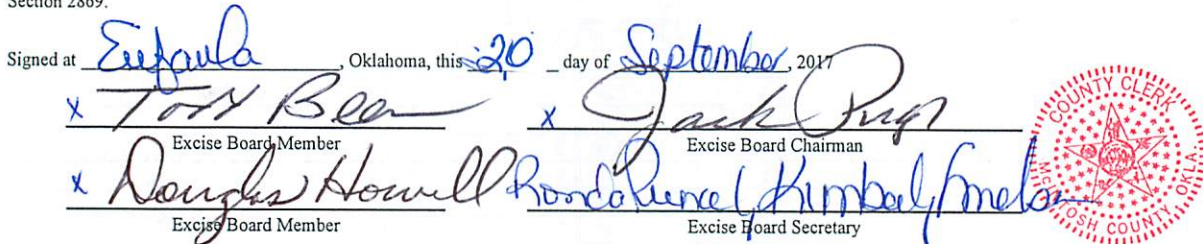 Section 2869.
Signed at Eufaula, Oklahoma, this 20 day of September, 2017
x Todd x Jack
Excise Board Member Excise Board Chairman
x Douglas Howell
Excise Board Member Excise Board Secretary
COUNTY CLERK
McINTOSH COUNTY OKLA.